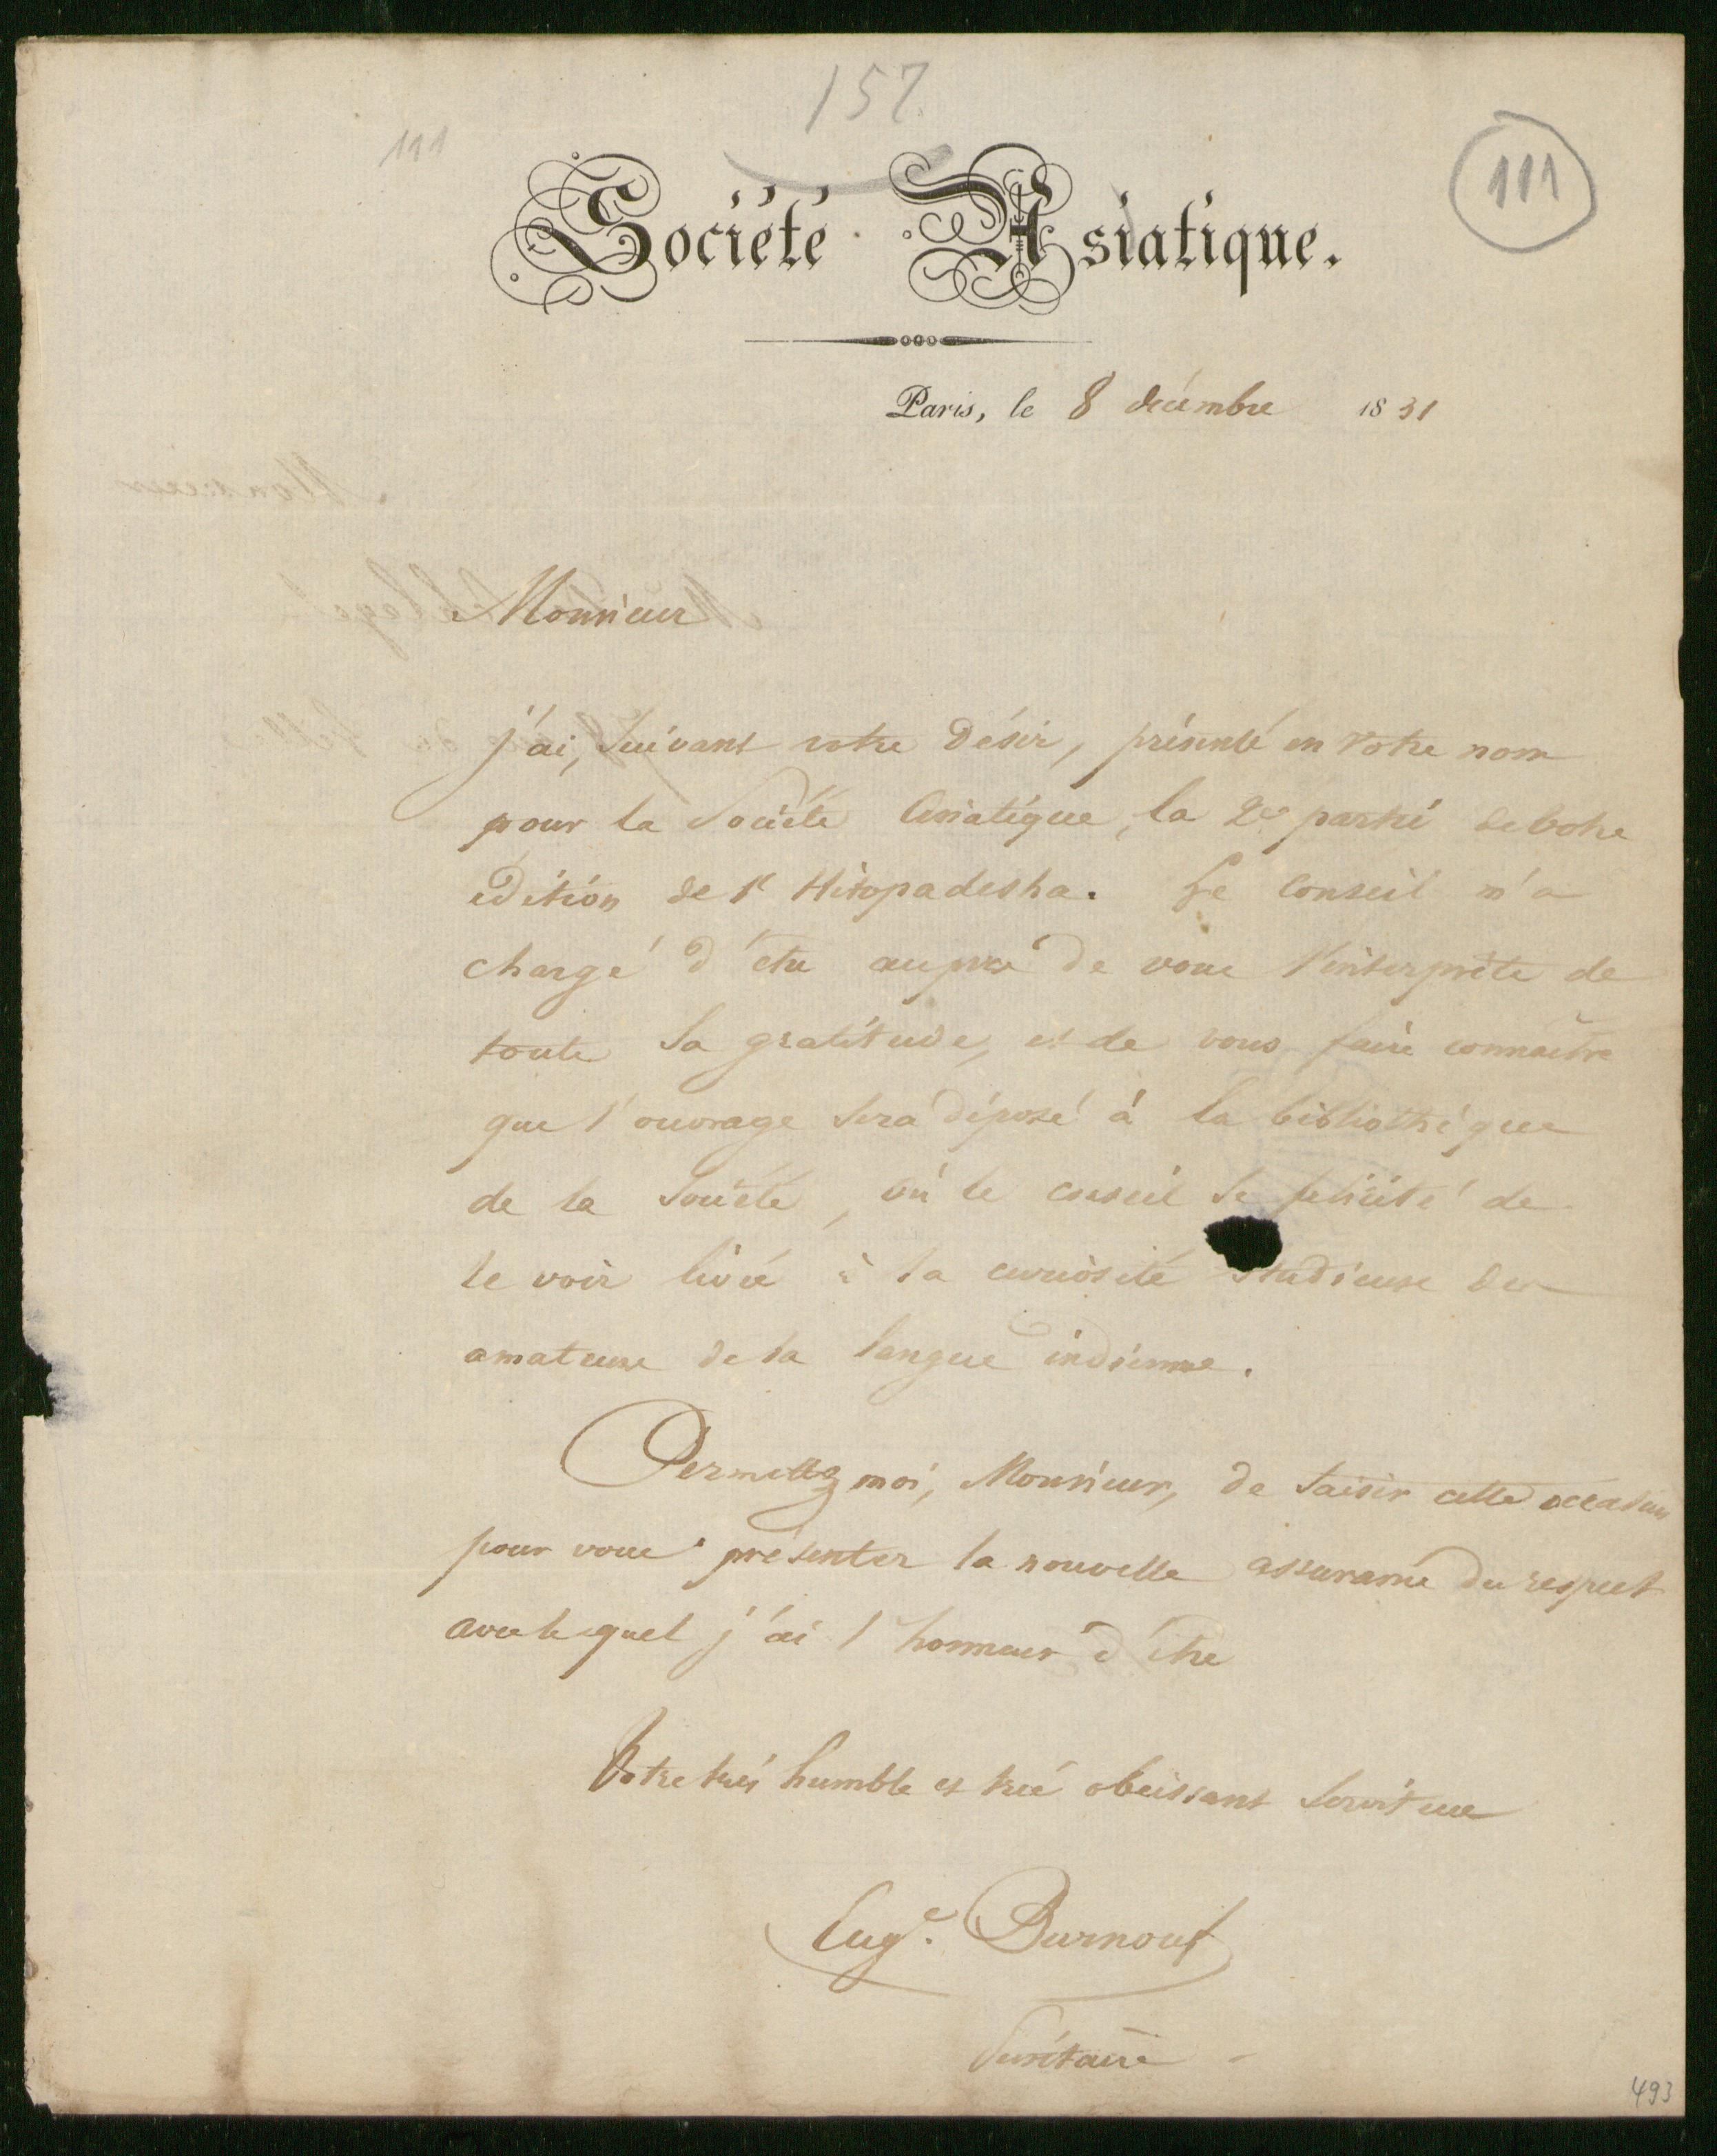 157
111
111
Société Asiatique.
Paris, le 8 décembre 1831
Monsieur
j'ai, suivant votre désir, présenté en votre nom
pour la Société Asiatique, la 2e partie de votre
édition de l'Hitopadesha. Le Conseil m'a
chargé d'être auprès de vous l'interprète de
toute sa gratitude, et de vous faire connaître
que l'ouvrage sera déposé à la bibliothèque
de la Société, où le conseil se félicite de
le voir livré à la curiosité studieuse des
amateurs de la langue indienne.
Permettez moi, Monsieur, de saisir cette occasion
pour vous présenter la nouvelle assurance du respect
avec lequel j'ai l'honneur d'être
Votre très humble et très obéissant serviteur
Euge. Burnouf
Secrétaire
493